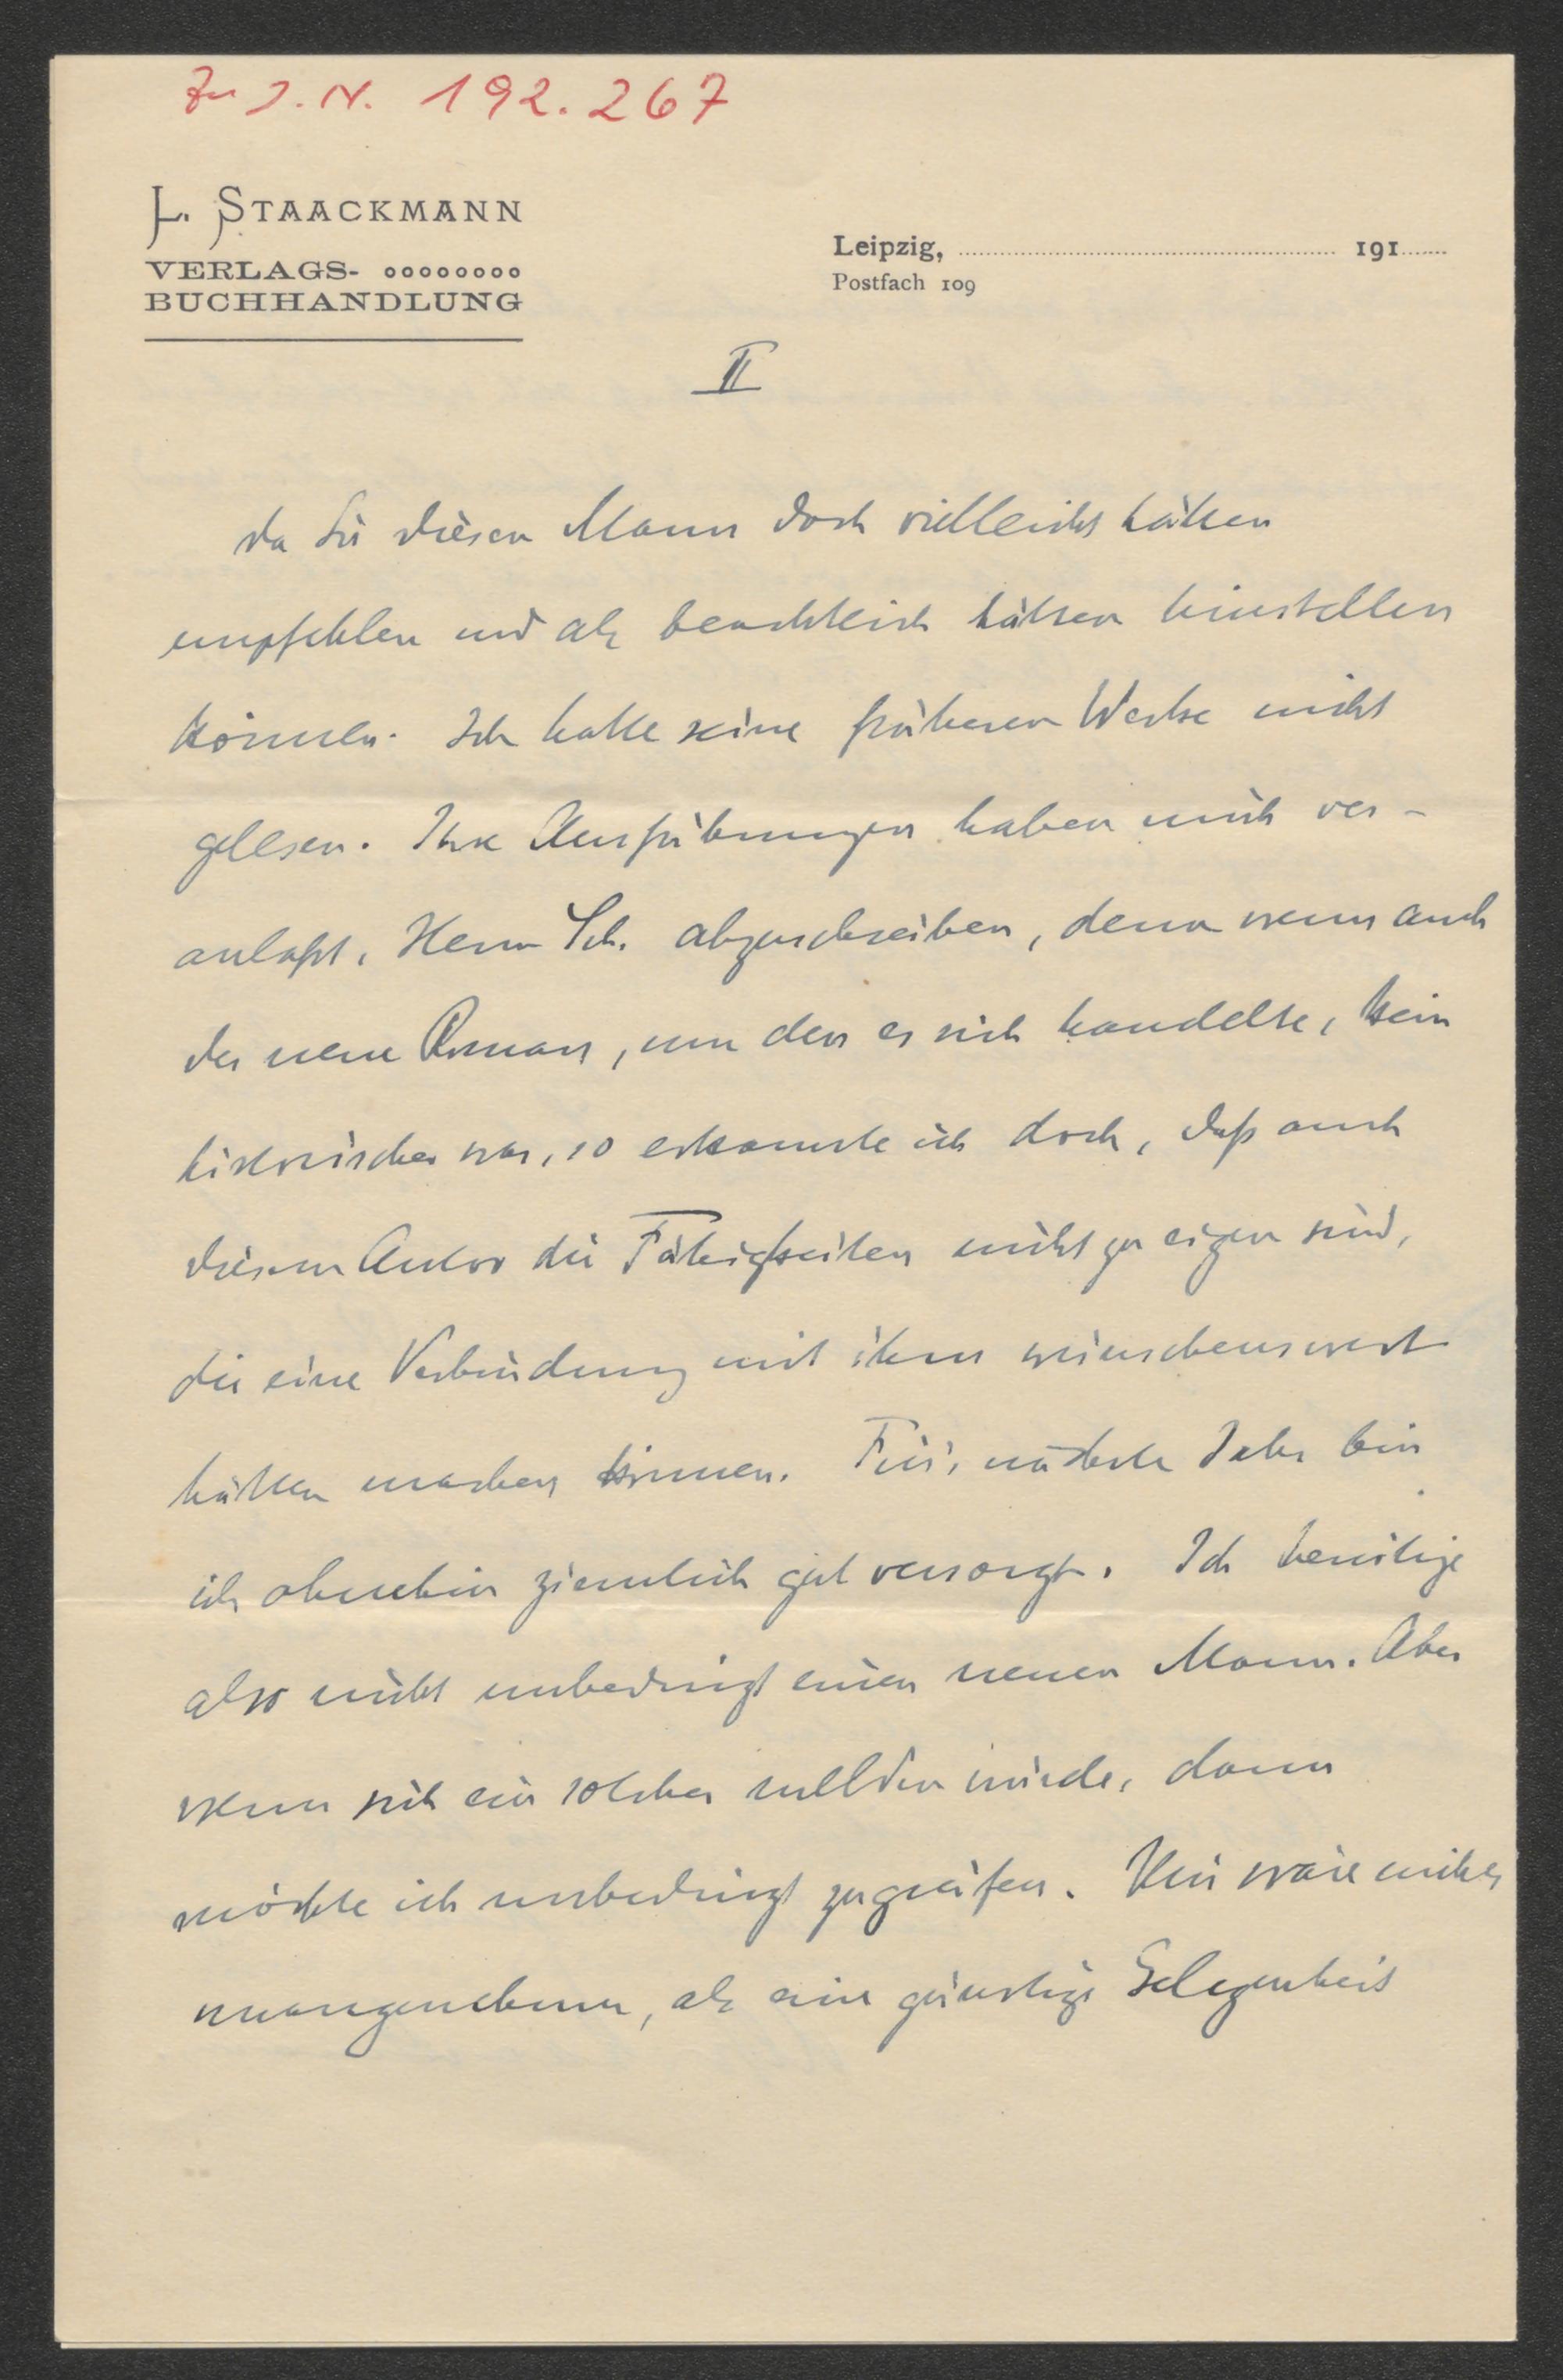 Zu I. N. 192.267
L. STAACKMANN
VERLAGS-
BUCHHANDLUNG
Leipzig, 191
Postfach 109
II
da Sie diesen Mann doch vielleicht hätten
empfehlen und als beachtlich hätten hinstellen
können. Ich hatte seine früheren Werke nicht
gelesen. Ihre Ausführungen haben mich ver-
anlaßt, Herrn Sch. abzuschreiben, denn wenn auch
der neue Roman, um den es sich handelte, kein
historischer war, so erkannte ich doch, daß auch
diesem Autor die Fähigkeiten nicht zu eigen sind,
die eine Verbindung mit ihm wünschenswert
hätten machen können. Für's nächste Jahr bin
ich ohnehin ziemlich gut versorgt. Ich benötige
also nicht unbedingt einen neuen Mann. Aber
wenn sich ein solcher melden würde, dann
möchte ich unbedingt zugreifen. Mir wäre nichts
unangenehmer, als eine günstige Gelegenheit